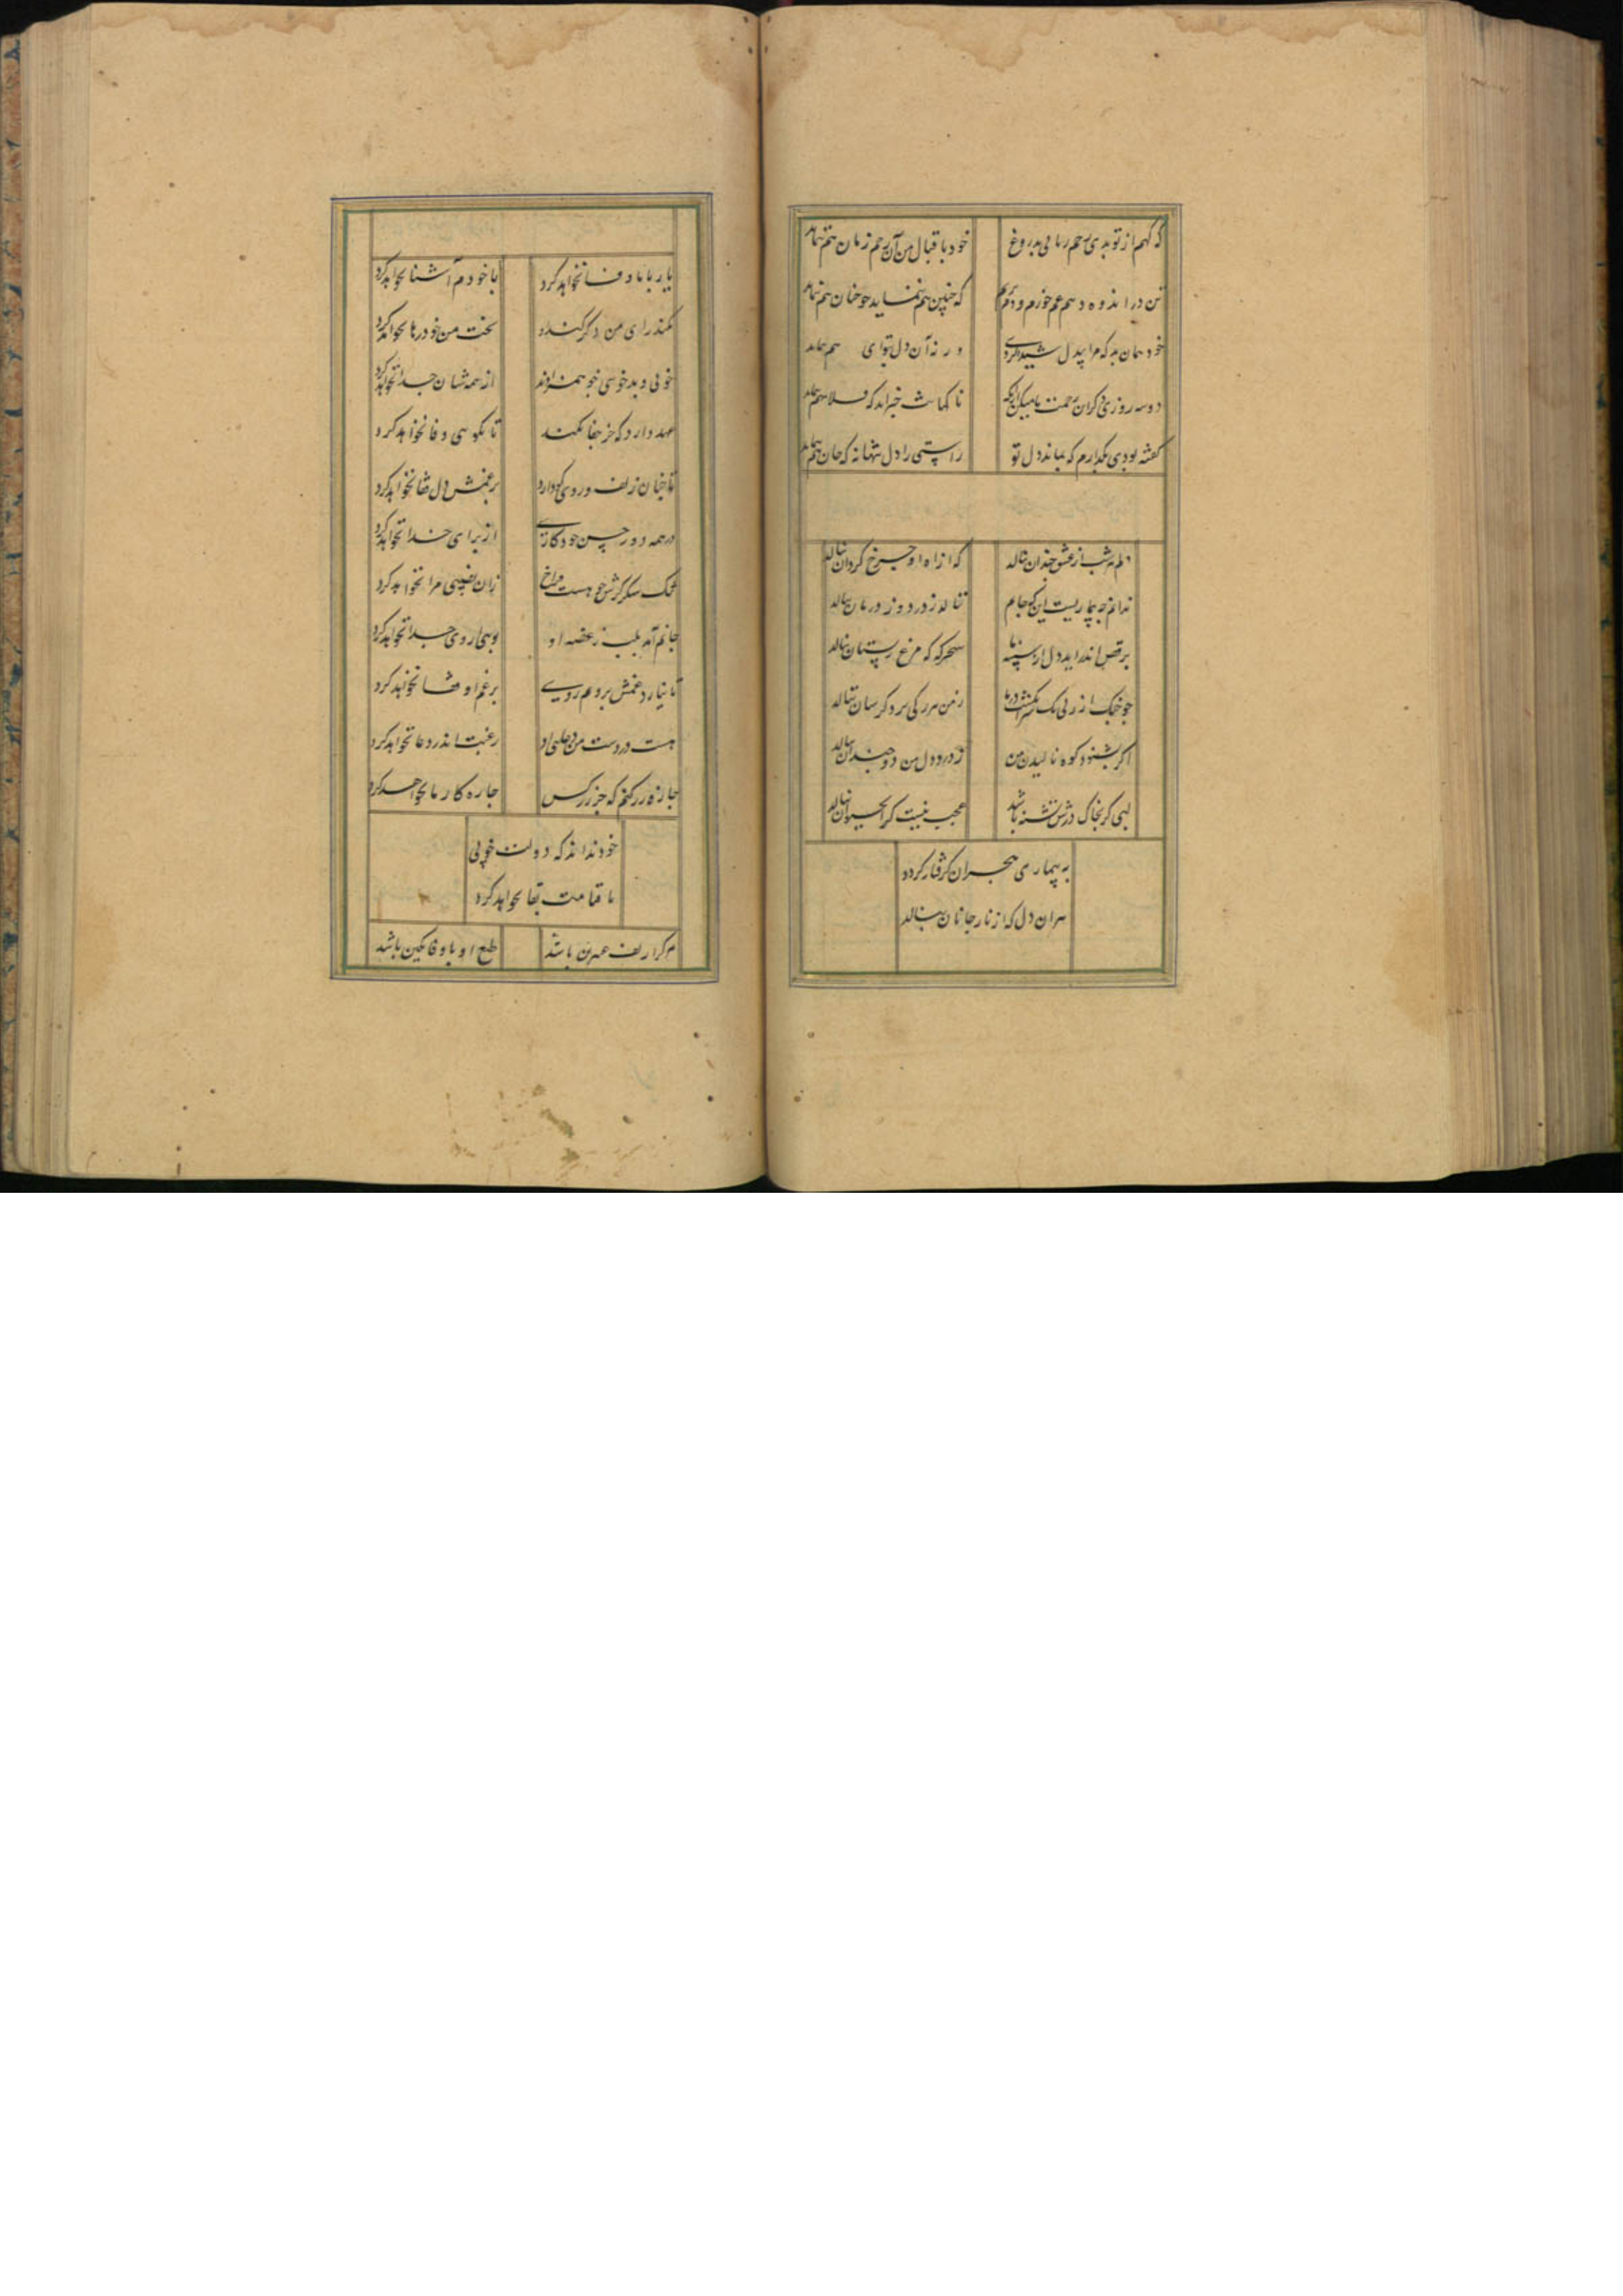 که کهم از تو بدی رحم زمانی بدروغ خود باقبال من آن رحم زمان هم نماند
تن در اندوه دهم غم خورم و دم نزنم که چنین هم ننماید چو چنان هم نماند
خود همان به که مرا بیدل شیدا کردی ورنه آن دل توای هم نماند
دو سه روزی دکران رحمت با
گفته بودی بگذارم که بماند دل تو راستی را دل تنها نه که جان هم نماند
دلم هر شب از عشق چندان بنالد که از آه او چرخ گردان بنالد
ندانم چه بیماریست این که جانم بنالد ز درد و ز درمان بنالد
برقص اندر آید دل از سینه سحرگه که مرغ بستان بنالد
چو چنگ از زنی یک ز من هر رگی بنالد
اگر بشنود کوه نالیدن من ز درد دل من دو چندان بنالد
لبی کز بخاک درش تشنه باشد عجب نیست کر آب حیوان بنالد
به بیماری هجران گرفتار گردد
هر آن دل که از نار جانان بنالد
یار با ما وفا نخواهد کرد با خودم آشنا نخواهد کرد
نکند رای من دگر نکند بخت من خود رها نخواهد کرد
خوبی و بدخویی چو همزادند از همه شان جدا نخواهد کرد
عهد دارد که جز جفا نکند تا نگویی وفا نخواهد کرد
تا چنان زلف و روی کو دارد بر غمش دل نخواهد کرد
در همه دور حسن خود کاری از برای خدا نخواهد کرد
تنگ شکر گرش چو هست فراخ زان نصیبی مرا نخواهد کرد
جانم آمد بلب ز غصه او بوسی از وی جدا نخواهد کرد
تا نیارد غمش بروم روی بر غم او نخواهد کرد
هست در دست من دعایی و او رغبت اندر دعا نخواهد کرد
چاره زر کنم که جز زر کس چاره کار ما نخواهد کرد
خود نداند که دولت خوبی
تا قیامت بقا نخواهد کرد
هر کرا زلف عنبرین باشد طبع او با وفا بکین باشد